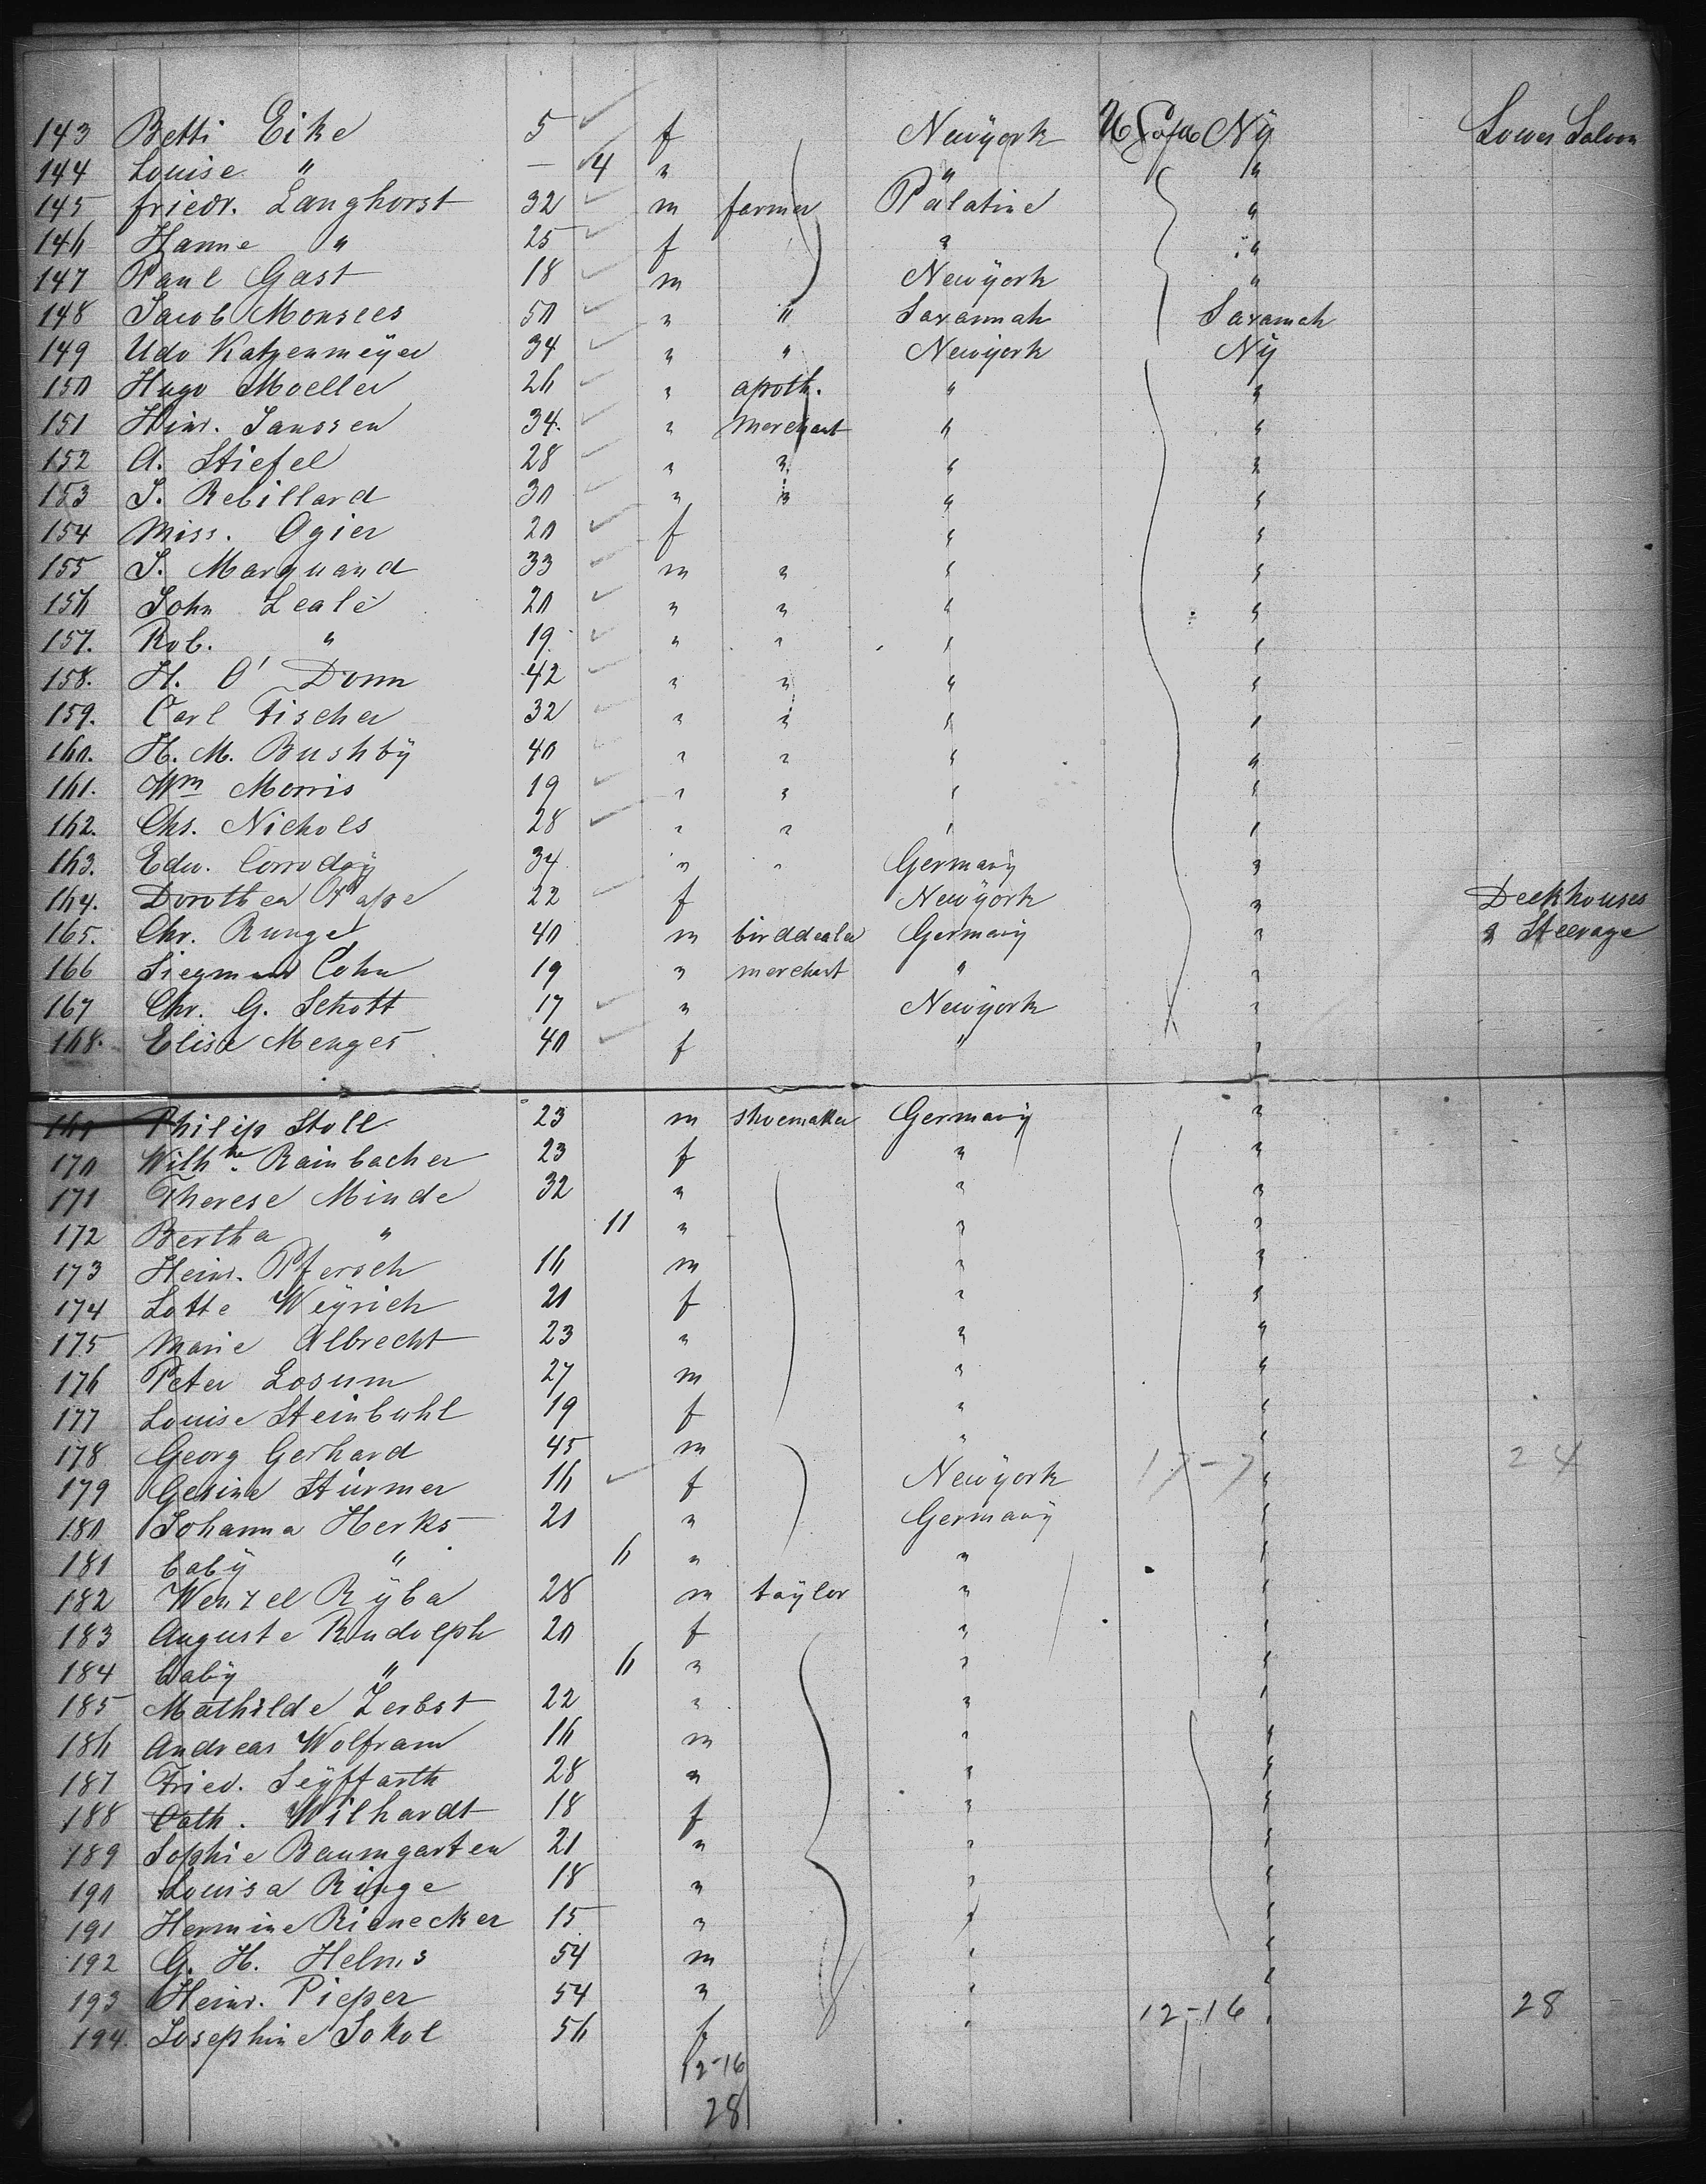 143 Betti Eike 5 f Newÿork Nÿ Lower Saloon
144 Louise " — 4 " " "
145 Friedr. Langhorst 32 m farmer Palatine "
146 Hanne " 25 f " "
147 Paul Gast 18 m Newÿork "
148 Jacob Monsees 50 " " Savannah Savannah
149 Udo Katzenmeÿer 34 " " Newÿork Nÿ
150 Hugo Moeller 26 " apoth. " "
151 Hinr. Janssen 34. " merchant " "
152 A. Stiefel 28 " " " "
153 J. Rebillard 30 " " " "
154 Miss. Ogier 20 f " "
155 J. Marquand 33 m " " "
156 John Leale 20 " " " "
157. Rob. " 19 " " " "
158. H. O' Donn 42 " " " "
159. Carl Fischer 32 " " " "
160. H. M. Bushbÿ 40 " " " "
161. Wm Morris 19 " " " "
162. Chs. Nichols 28 " " " "
163. Edw. 34 " " Germanÿ "
164. Dorothea Pape 22 f Newÿork " Deckhouses
165. Chr. Runge 40 m birddealer Germanÿ " & Steerage
166 Siegmund Cohn 19 " merchant " "
167 Chr. G. Schott 17 " Newÿork "
168. Elise Menges 40 f " "
169 Philip Stoll 23 m shoemaker Germanÿ "
170 Wilhne. Rainbacher 23 f " "
171 Therese Minde 32 " " "
172 Bertha " 11 " " "
173 Heinr. Pfersch 16 m " "
174 Lotte Weÿrich 21 f " "
175 Marie Albrecht 23 " " "
176 Peter Losum 27 m " "
177 Louise Steinbuhl 19 f " "
178 Georg Gerhard 45 m " " 17-7 24
179 Gesine Stürmer 16 f Newÿork "
180 Johanna Herks 21 " Germanÿ "
181 babÿ " 6 " " "
182 Wenzel Rÿba 28 m taÿlor " "
183 Auguste Rudolph 20 f " "
184 babÿ " 6 " " "
185 Mathilde Zerbst 22 " " "
186 Andreas Wolfram 16 m " "
187 Fried. Seÿffarth 28 " " "
188 Cath. Wilhardt 18 f " "
189 Sophie Baumgarten 21 " " "
190 Louisa Ringe 18 " " "
191 Hermine Rienecker 15 " " "
192 G. H. Helms 54 m " "
193 Heinr. Pieper 54 " " " 12-16 28
194. Josephine Sokol 56 f " "
12-16
28